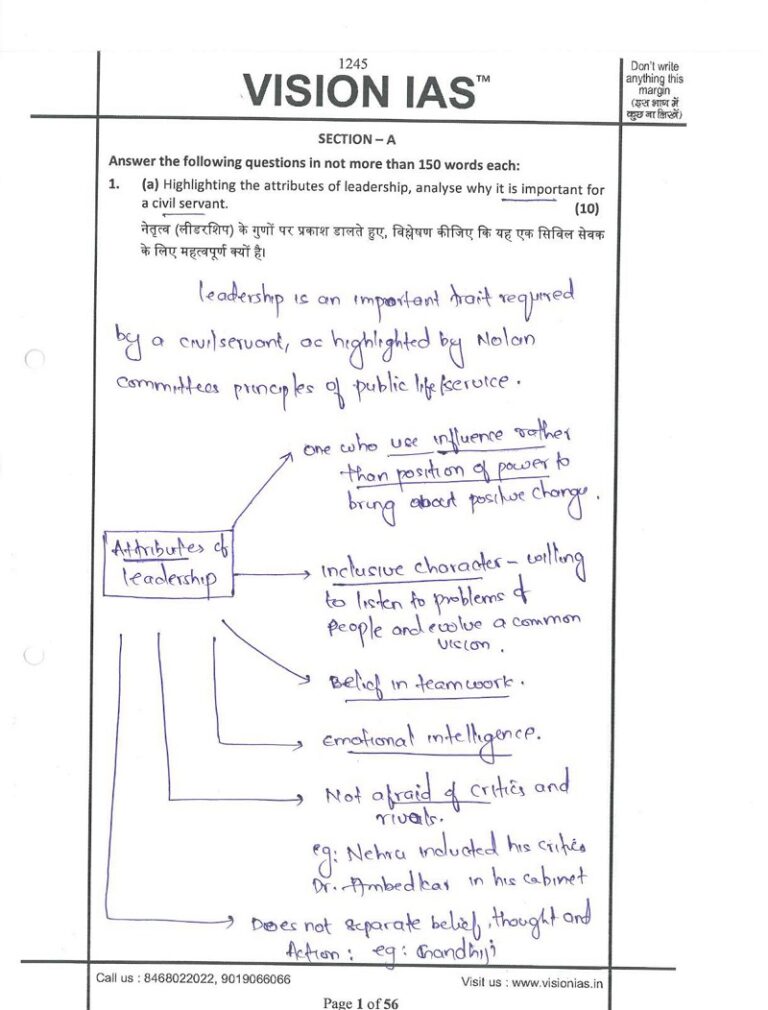 1245
VISION IAS™
Don't write
anything this
margin
(इस भाग में
कुछ ना लिखें)
SECTION – A
Answer the following questions in not more than 150 words each:
1. (a) Highlighting the attributes of leadership, analyse why it is important for
a civil servant. (10)
नेतृत्व (लीडरशिप) के गुणों पर प्रकाश डालते हुए, विश्लेषण कीजिए कि यह एक सिविल सेवक
के लिए महत्वपूर्ण क्यों है।
leadership is an important trait required
by a civil servant, as highlighted by Nolan
committees principles of public life/service.
one who use influence rather
than position of power to
bring about positive change.
Attributes of
leadership
Inclusive character – willing
to listen to problems of
people and evolve a common
vision.
Belief in teamwork.
Emotional intelligence.
Not afraid of critics and
rivals.
eg: Nehru inducted his critics
Dr. Ambedkar in his cabinet
Does not separate belief, thought and
Action: eg: Gandhiji
Call us : 8468022022, 9019066066
Visit us : www.visionias.in
Page 1 of 56